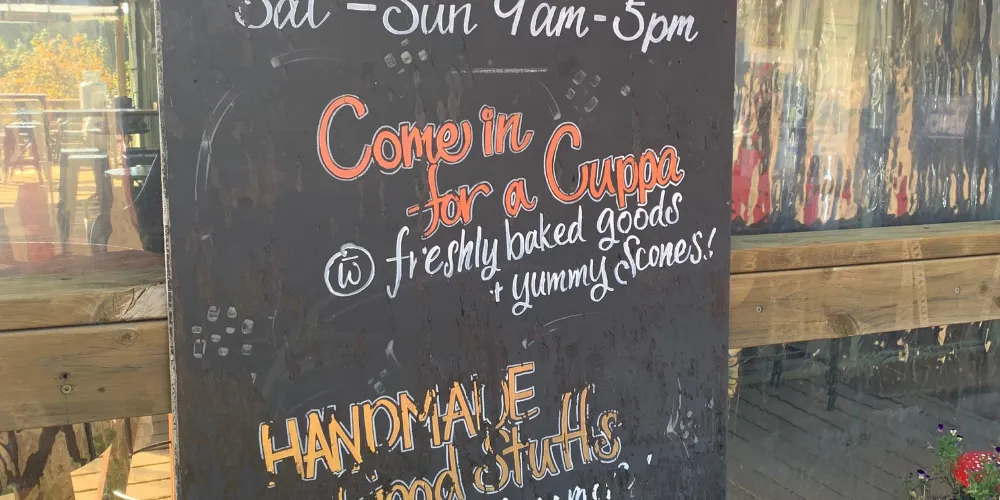 Sat - Sun 9am-5pm
Come in
for a Cuppa
w freshly baked goods
+ yummy Scones!
HANDMADE